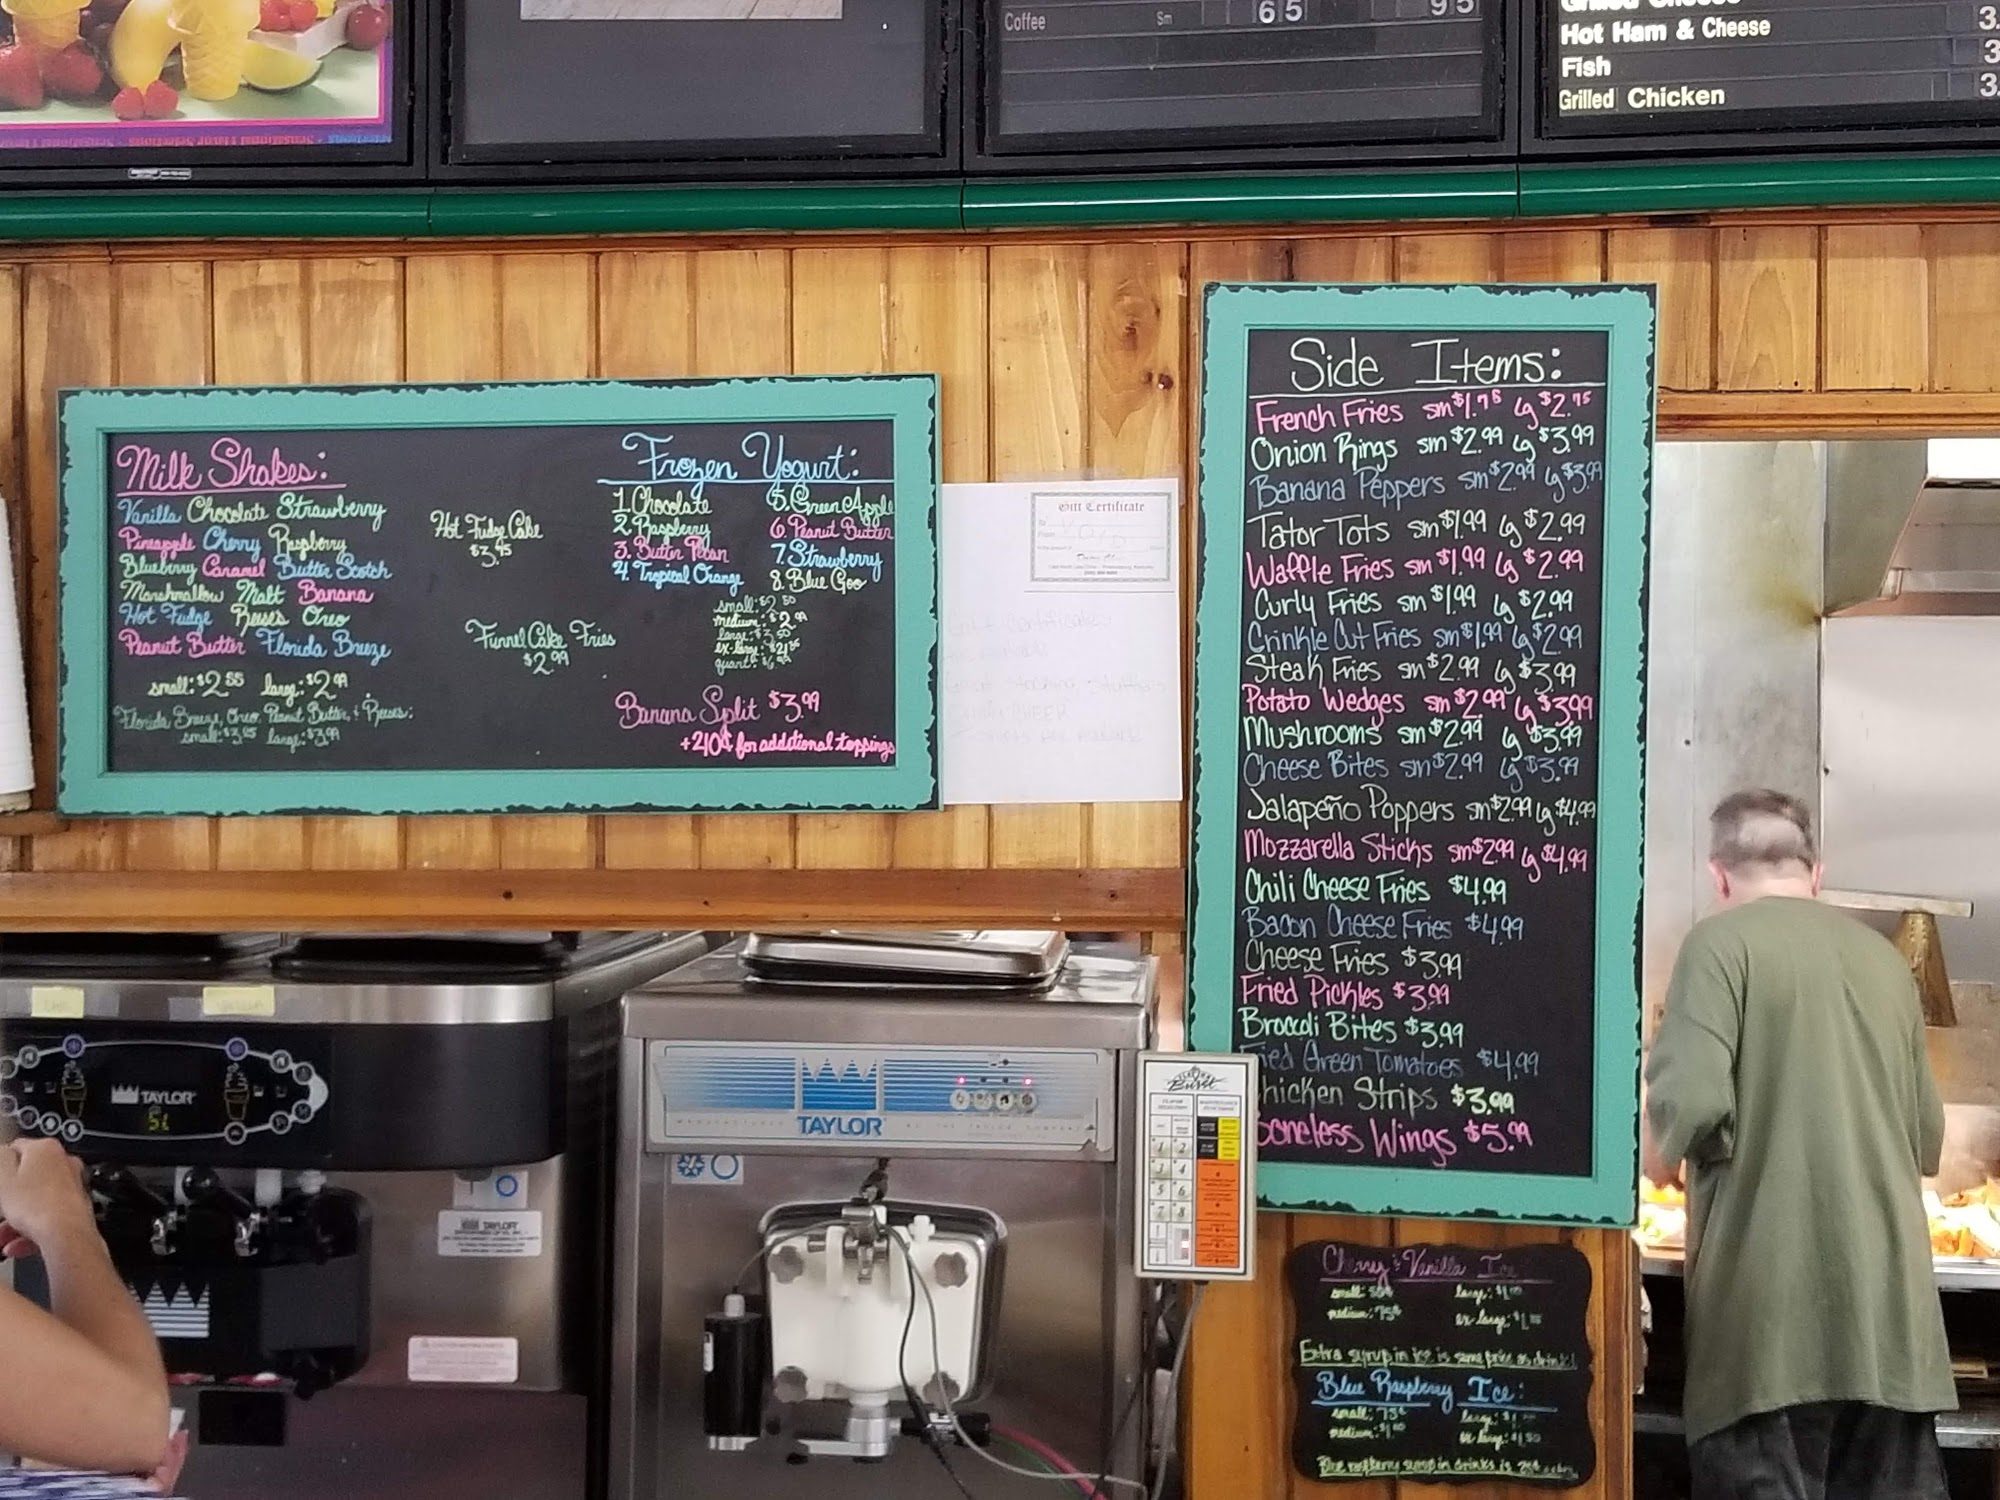 Coffee Sm 65 95
Hot Ham & Cheese 3.
Fish 3
Grilled Chicken 3.
Milk Shakes:
Vanilla Chocolate Strawberry
Pineapple Cherry Raspberry
Blueberry Caramel Butter Scotch
Marshmallow Malt Banana
Hot Fudge Reeses Oreo
Peanut Butter Florida Breeze
small: $2.55 large: $2.99
Florida Breeze, Oreo, Peanut Butter, & Reeses:
small: $3.25 large: $3.99
Hot Fudge Cake
$3.95
Funnel Cake Fries
$2.99
Frozen Yogurt:
1. Chocolate 5. Green Apple
2. Raspberry 6. Peanut Butter
3. Butter Pecan 7. Strawberry
4. Tropical Orange 8. Blue Goo
small: $2.50
medium: $2.99
large: $3.50
ex-large:
quart:
Banana Split $3.99
+ 240¢ for additional toppings
Gift Certificate
Side Items:
French Fries sm $1.75 lg $2.75
Onion Rings sm $2.99 lg $3.99
Banana Peppers sm $2.99 lg $3.99
Tator Tots sm $1.99 lg $2.99
Waffle Fries sm $1.99 lg $2.99
Curly Fries sm $1.99 lg $2.99
Crinkle Cut Fries sm $1.99 lg $2.99
Steak Fries sm $2.99 lg $3.99
Potato Wedges sm $2.99 lg $3.99
Mushrooms sm $2.99 lg $3.99
Cheese Bites sm $2.99 lg $3.99
Jalapeño Poppers sm $2.99 lg $4.99
Mozzarella Sticks sm $2.99 lg $4.99
Chili Cheese Fries $4.99
Bacon Cheese Fries $4.99
Cheese Fries $3.99
Fried Pickles $3.99
Broccoli Bites $3.99
ried Green Tomatoes $4.99
hicken Strips $3.99
oneless Wings $5.99
TAYLOR
TAYLOR
TAYLOR
Burst
1 2
3 4
5 6
7 8
Cherry & Vanilla Ice
small: 50¢ large:
medium: 75¢ ex-large:
Extra syrup in ice is same price as drink!
Blue Raspberry Ice:
small: 75¢ large:
medium: ex-large: $1.50
Blue raspberry syrup in drinks is 25¢ extra